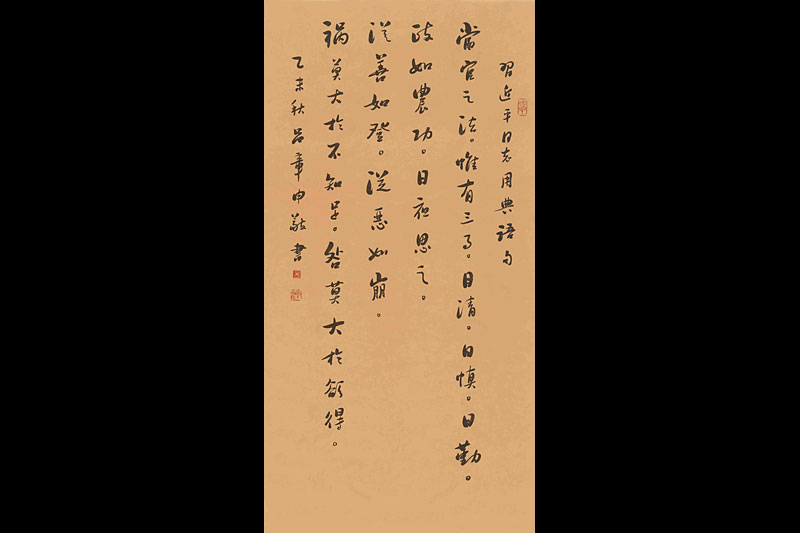 習近平同志用典語句
當官之法。惟有三事。曰清。曰慎。曰勤。
政如農功。日夜思之。
從善如登。從惡如崩。
禍莫大於不知足。咎莫大於欲得。
乙未秋呂章申敬書